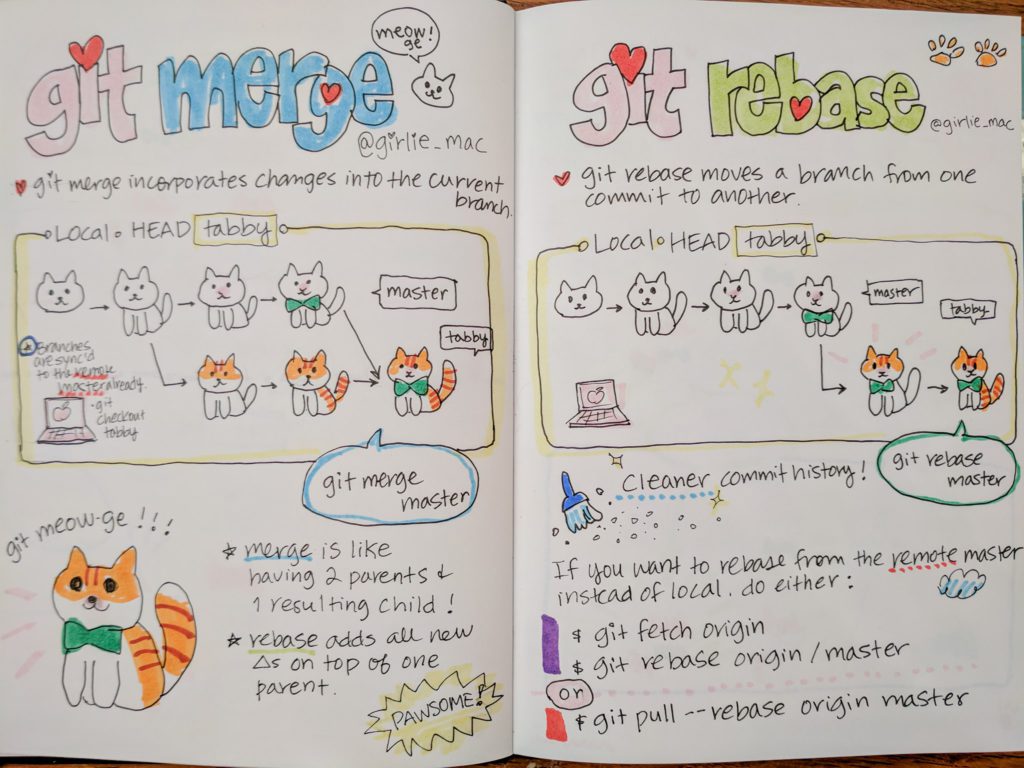 git merge
meow!
ge
@girlie_mac
git merge incorporates changes into the current
branch.
Local HEAD tabby
master
tabby
Branches
are sync'd
to the remote
master already.
git
checkout
tabby
git merge
master
git meow-ge!!!
merge is like
having 2 parents &
1 resulting child!
rebase adds all new
Δs on top of one
parent.
PAWSOME!
git rebase
@girlie_mac
git rebase moves a branch from one
commit to another.
Local HEAD tabby
master
tabby
git rebase
master
Cleaner commit history!
If you want to rebase from the remote master
instead of local, do either:
$ git fetch origin
$ git rebase origin/master
or
$ git pull --rebase origin master